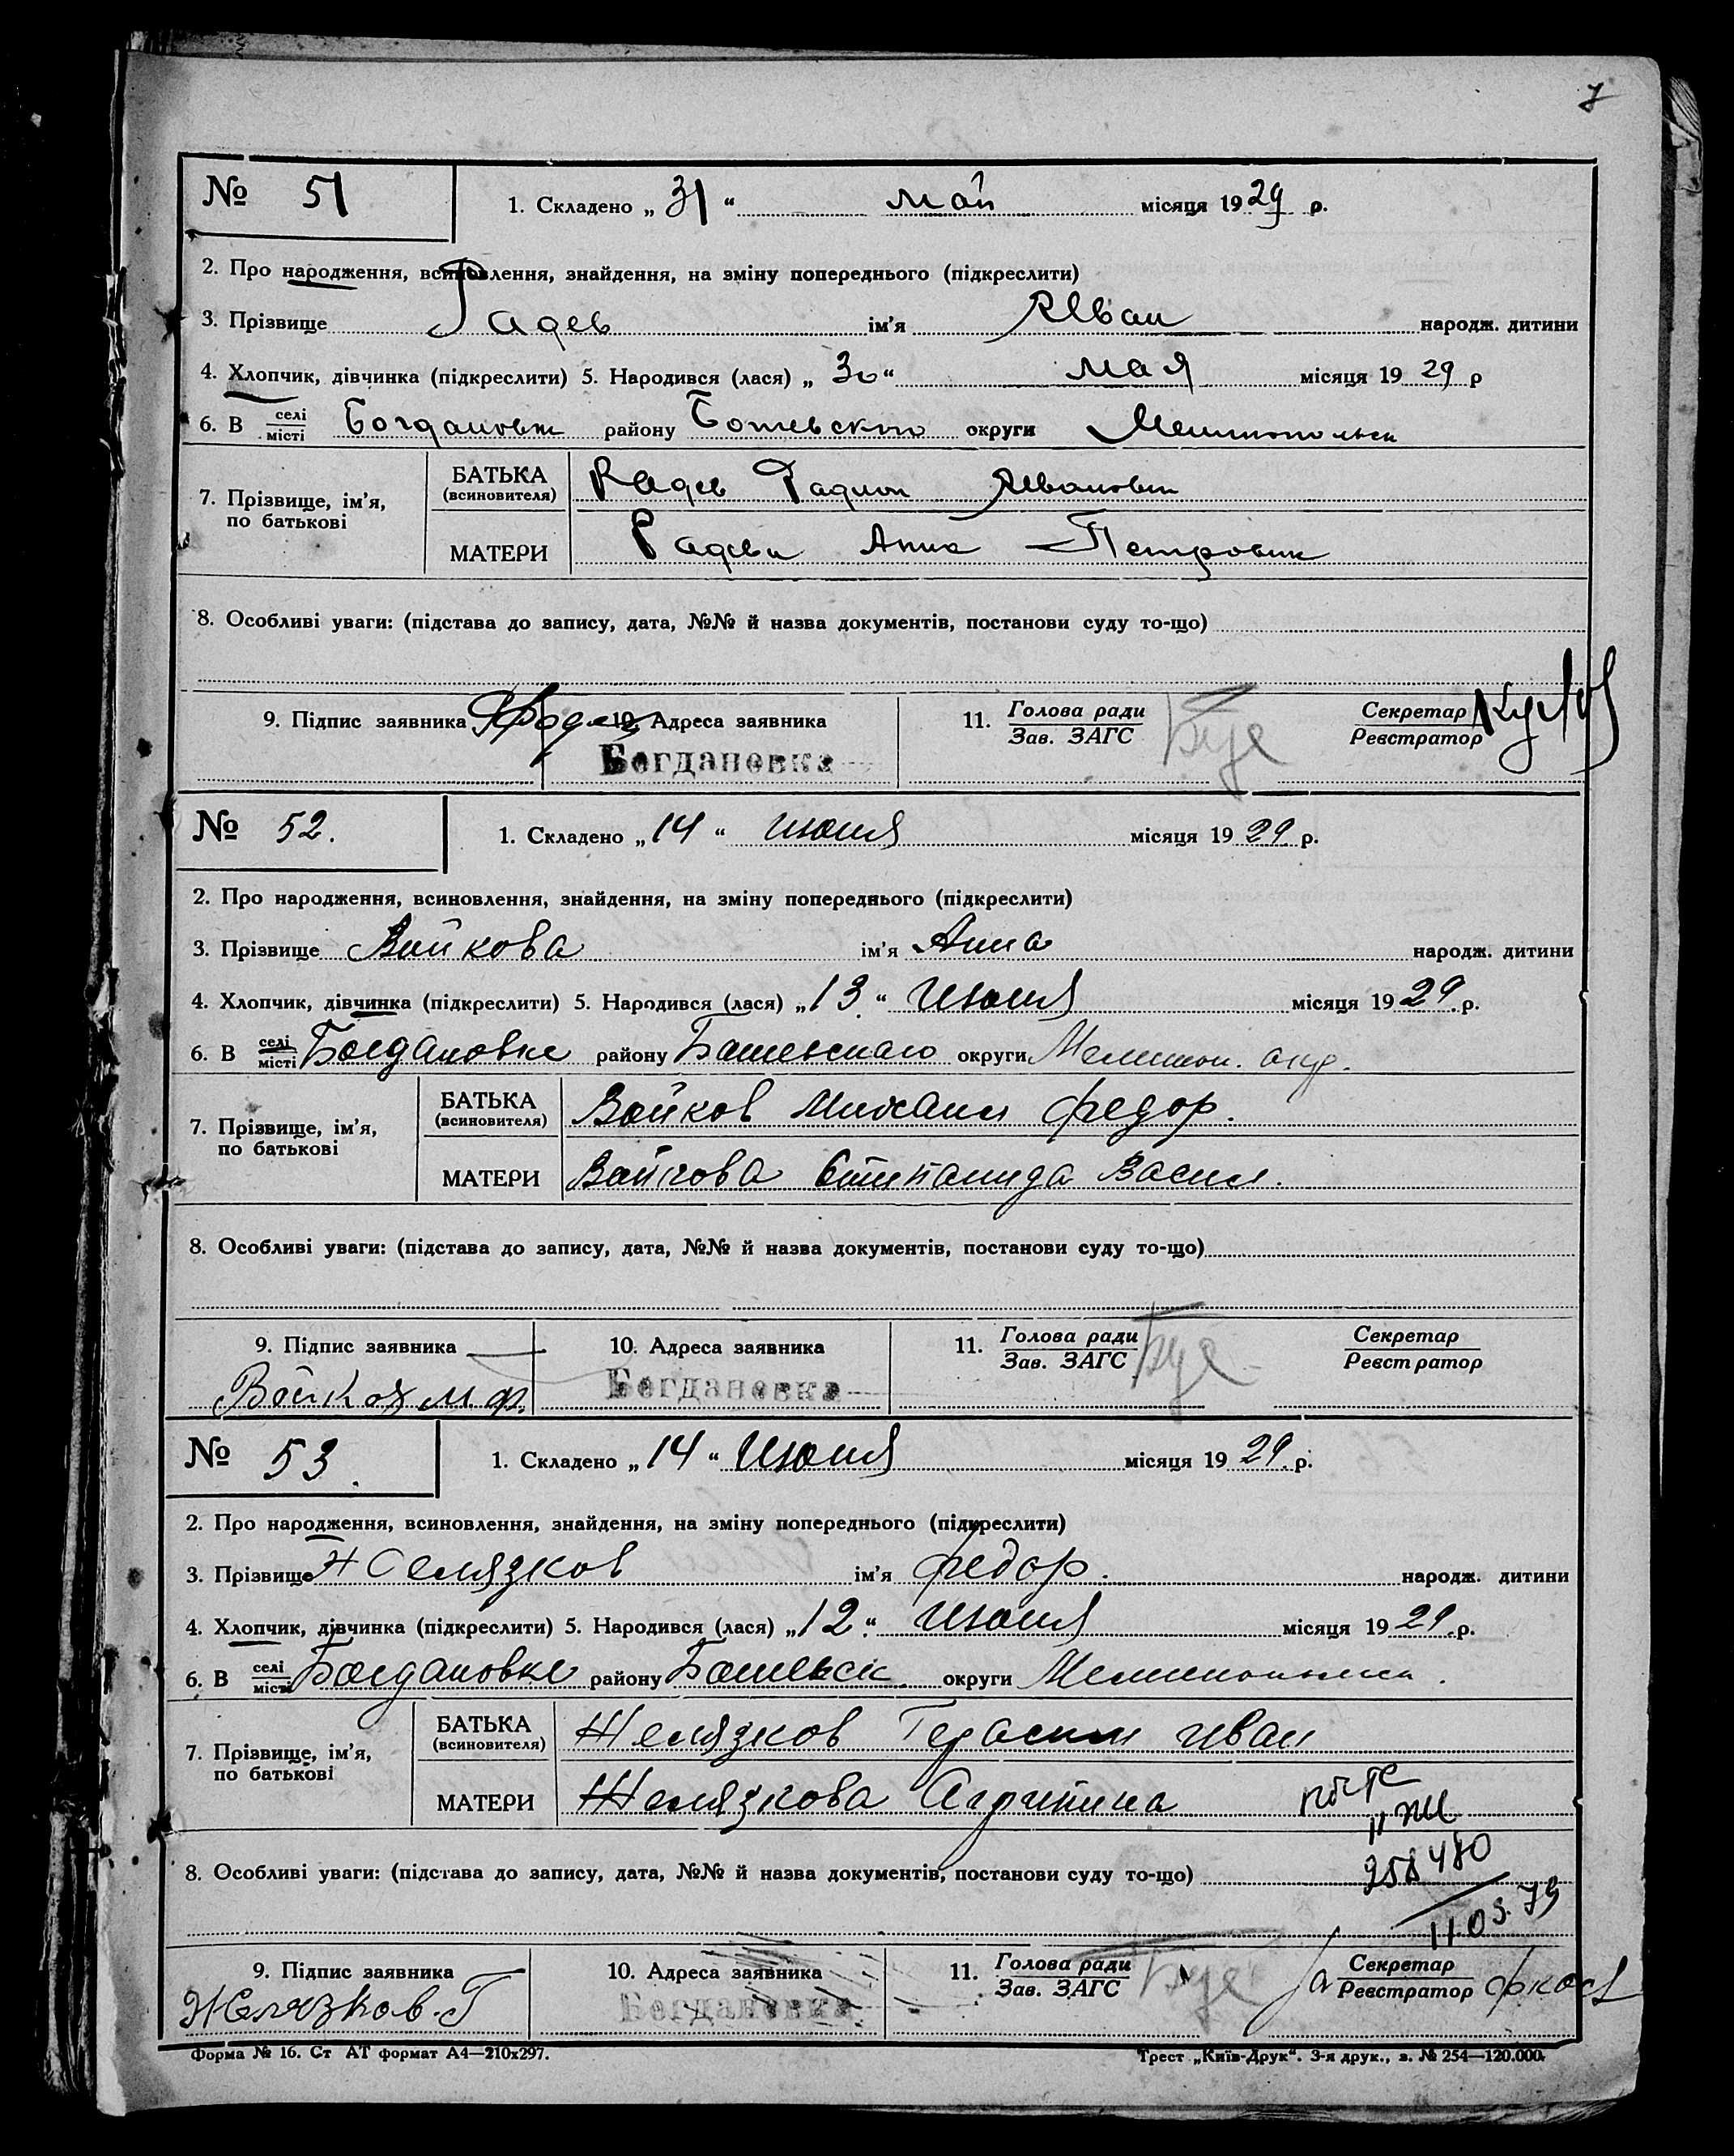 7
№ 51 1. Складено „ 31 “ май місяця 1929 р.
2. Про народження, всиновлення, знайдення, на зміну попереднього (підкреслити)
3. Прізвище Радев ім'я Иван народж. дитини
4. Хлопчик, дівчинка (підкреслити) 5. Народився (лася) „ 30 “ мая місяця 1929 р
6. В селі місті Богдановке району Ботевского округи Мелитопольск
7. Прізвище, ім'я, по батькові
БАТЬКА (всиновителя) Радев Радион Иванович
МАТЕРИ Радева Анна Петровна
8. Особливі уваги: (підстава до запису, дата, №№ й назва документів, постанови суду то-що)
9. Підпис заявника 10. Адреса заявника 11. Голова ради Зав. ЗАГС Секретар Реєстратор
Богдановка
№ 52. 1. Складено „ 14 “ июня місяця 1929. р.
2. Про народження, всиновлення, знайдення, на зміну попереднього (підкреслити)
3. Прізвище Войкова ім'я Анна народж. дитини
4. Хлопчик, дівчинка (підкреслити) 5. Народився (лася) „ 13. “ Июня місяця 1929. р.
6. В селі місті Богдановке району Ботевского округи Мелитоп. окр.
7. Прізвище, ім'я, по батькові
БАТЬКА (всиновителя) Войков Михаил Федор.
МАТЕРИ Войкова Стипанида Васил.
8. Особливі уваги: (підстава до запису, дата, №№ й назва документів, постанови суду то-що)
9. Підпис заявника 10. Адреса заявника 11. Голова ради Зав. ЗАГС Секретар Реєстратор
Войков М. Ф. Богдановка
№ 53. 1. Складено „ 14 “ Июня місяця 1929. р.
2. Про народження, всиновлення, знайдення, на зміну попереднього (підкреслити)
3. Прізвище Желязков ім'я Федор. народж. дитини
4. Хлопчик, дівчинка (підкреслити) 5. Народився (лася) „ 12. “ Июня місяця 1929. р.
6. В селі місті Богдановке району Ботевск. округи Мелитопольск.
7. Прізвище, ім'я, по батькові
БАТЬКА (всиновителя) Желязков Герасим Иван
МАТЕРИ Желязкова Агрипина
8. Особливі уваги: (підстава до запису, дата, №№ й назва документів, постанови суду то-що)
258480
11.03.79
9. Підпис заявника 10. Адреса заявника 11. Голова ради Зав. ЗАГС За Секретар Реєстратор
Желязков. Г Богдановка
Форма № 16. Ст АТ формат А4—210х297. Трест „Київ-Друк“. 3-я друк., з. № 254—120.000.